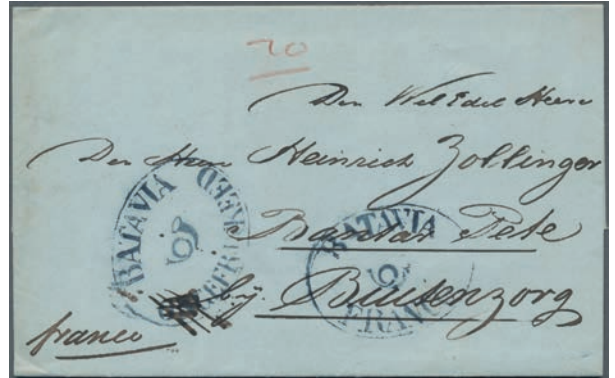 20
Den WelEdel Heere
Den Heer Heinrich Zollinger
Bantar Pete
bij Buitenzorg
franco
BATAVIA
ONGEFRANKEERD
BATAVIA
FRANCO